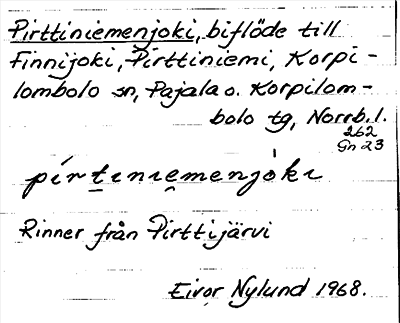 Pirttiniemenjoki, biflöde till
Finnijoki, Pirttiniemi, Korpi-
lombolo sn, Pajala o. Korpilom-
bolo tg, Norrb. l.
262
Gn 23
pírtiniemenjòki
Rinner från Pirttijärvi
Eivor Nylund 1968.